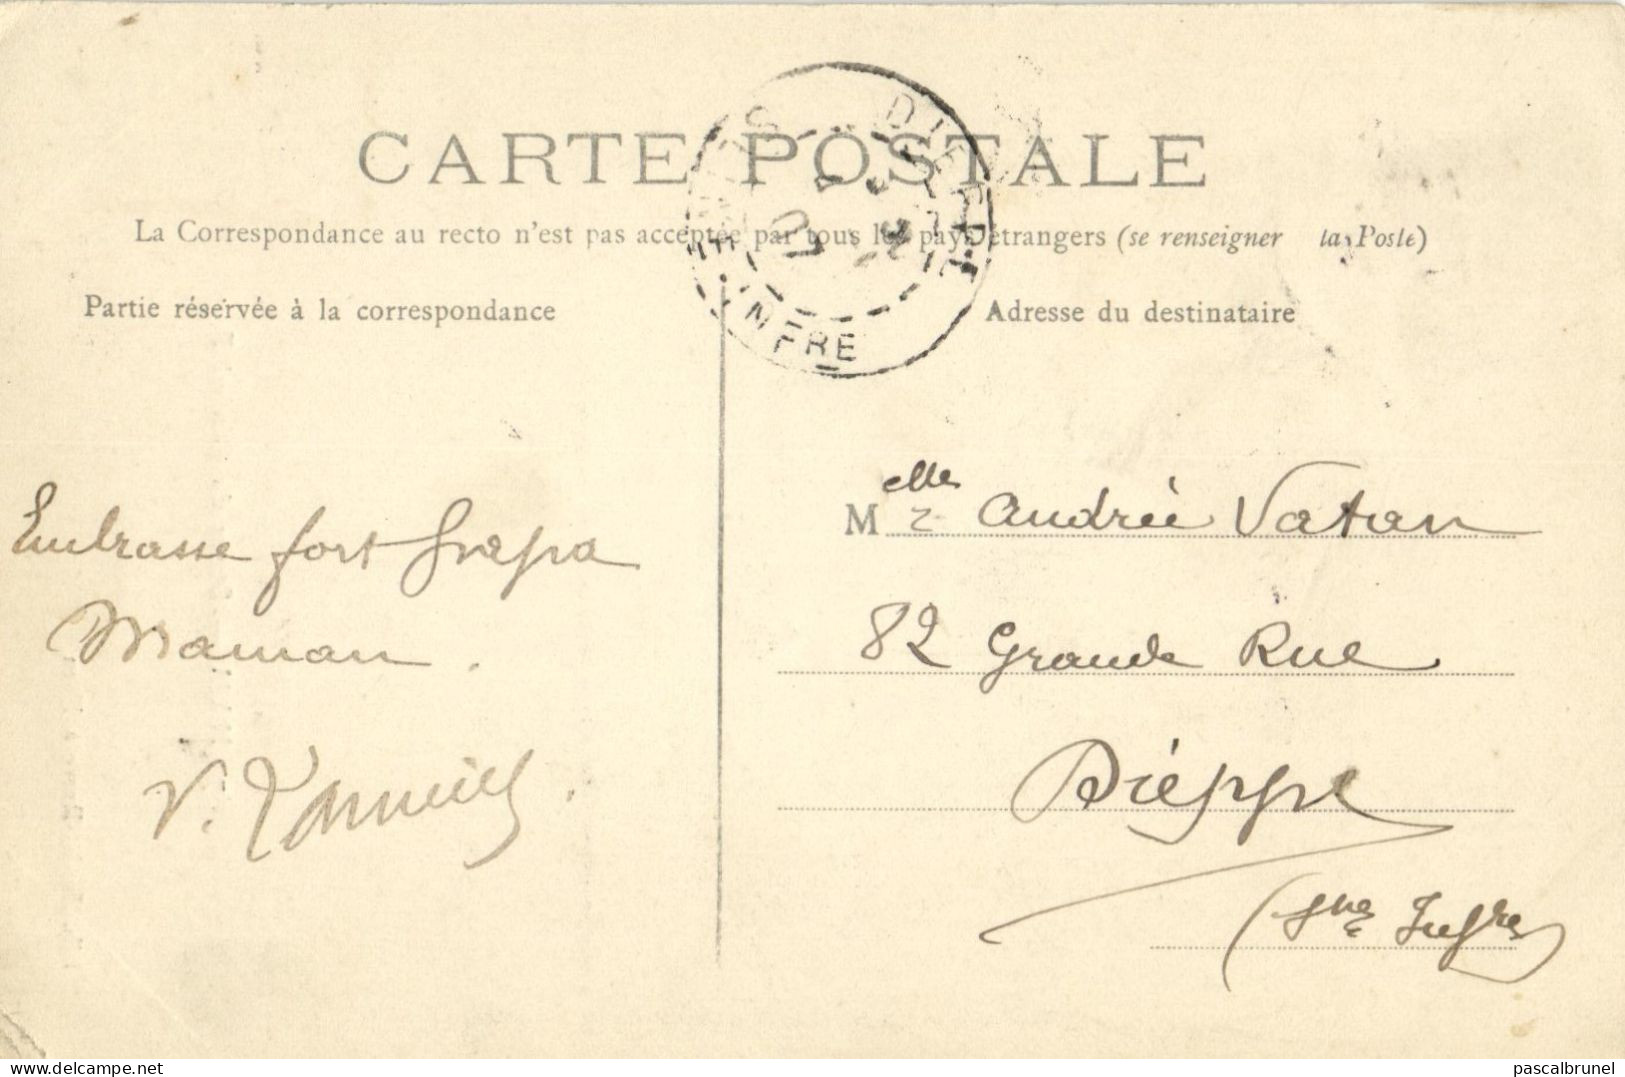 CARTE POSTALE
La Correspondance au recto n'est pas acceptée par tous les pays étrangers (se renseigner la Poste)
Partie réservée à la correspondance
Adresse du destinataire
DIEPPE
INFRE
Embrasse fort
Maman.
V.
Melle Andrée Vatan
82 Grande Rue
Dieppe
(Sne Infre)
delcampe.net
pascalbrunel